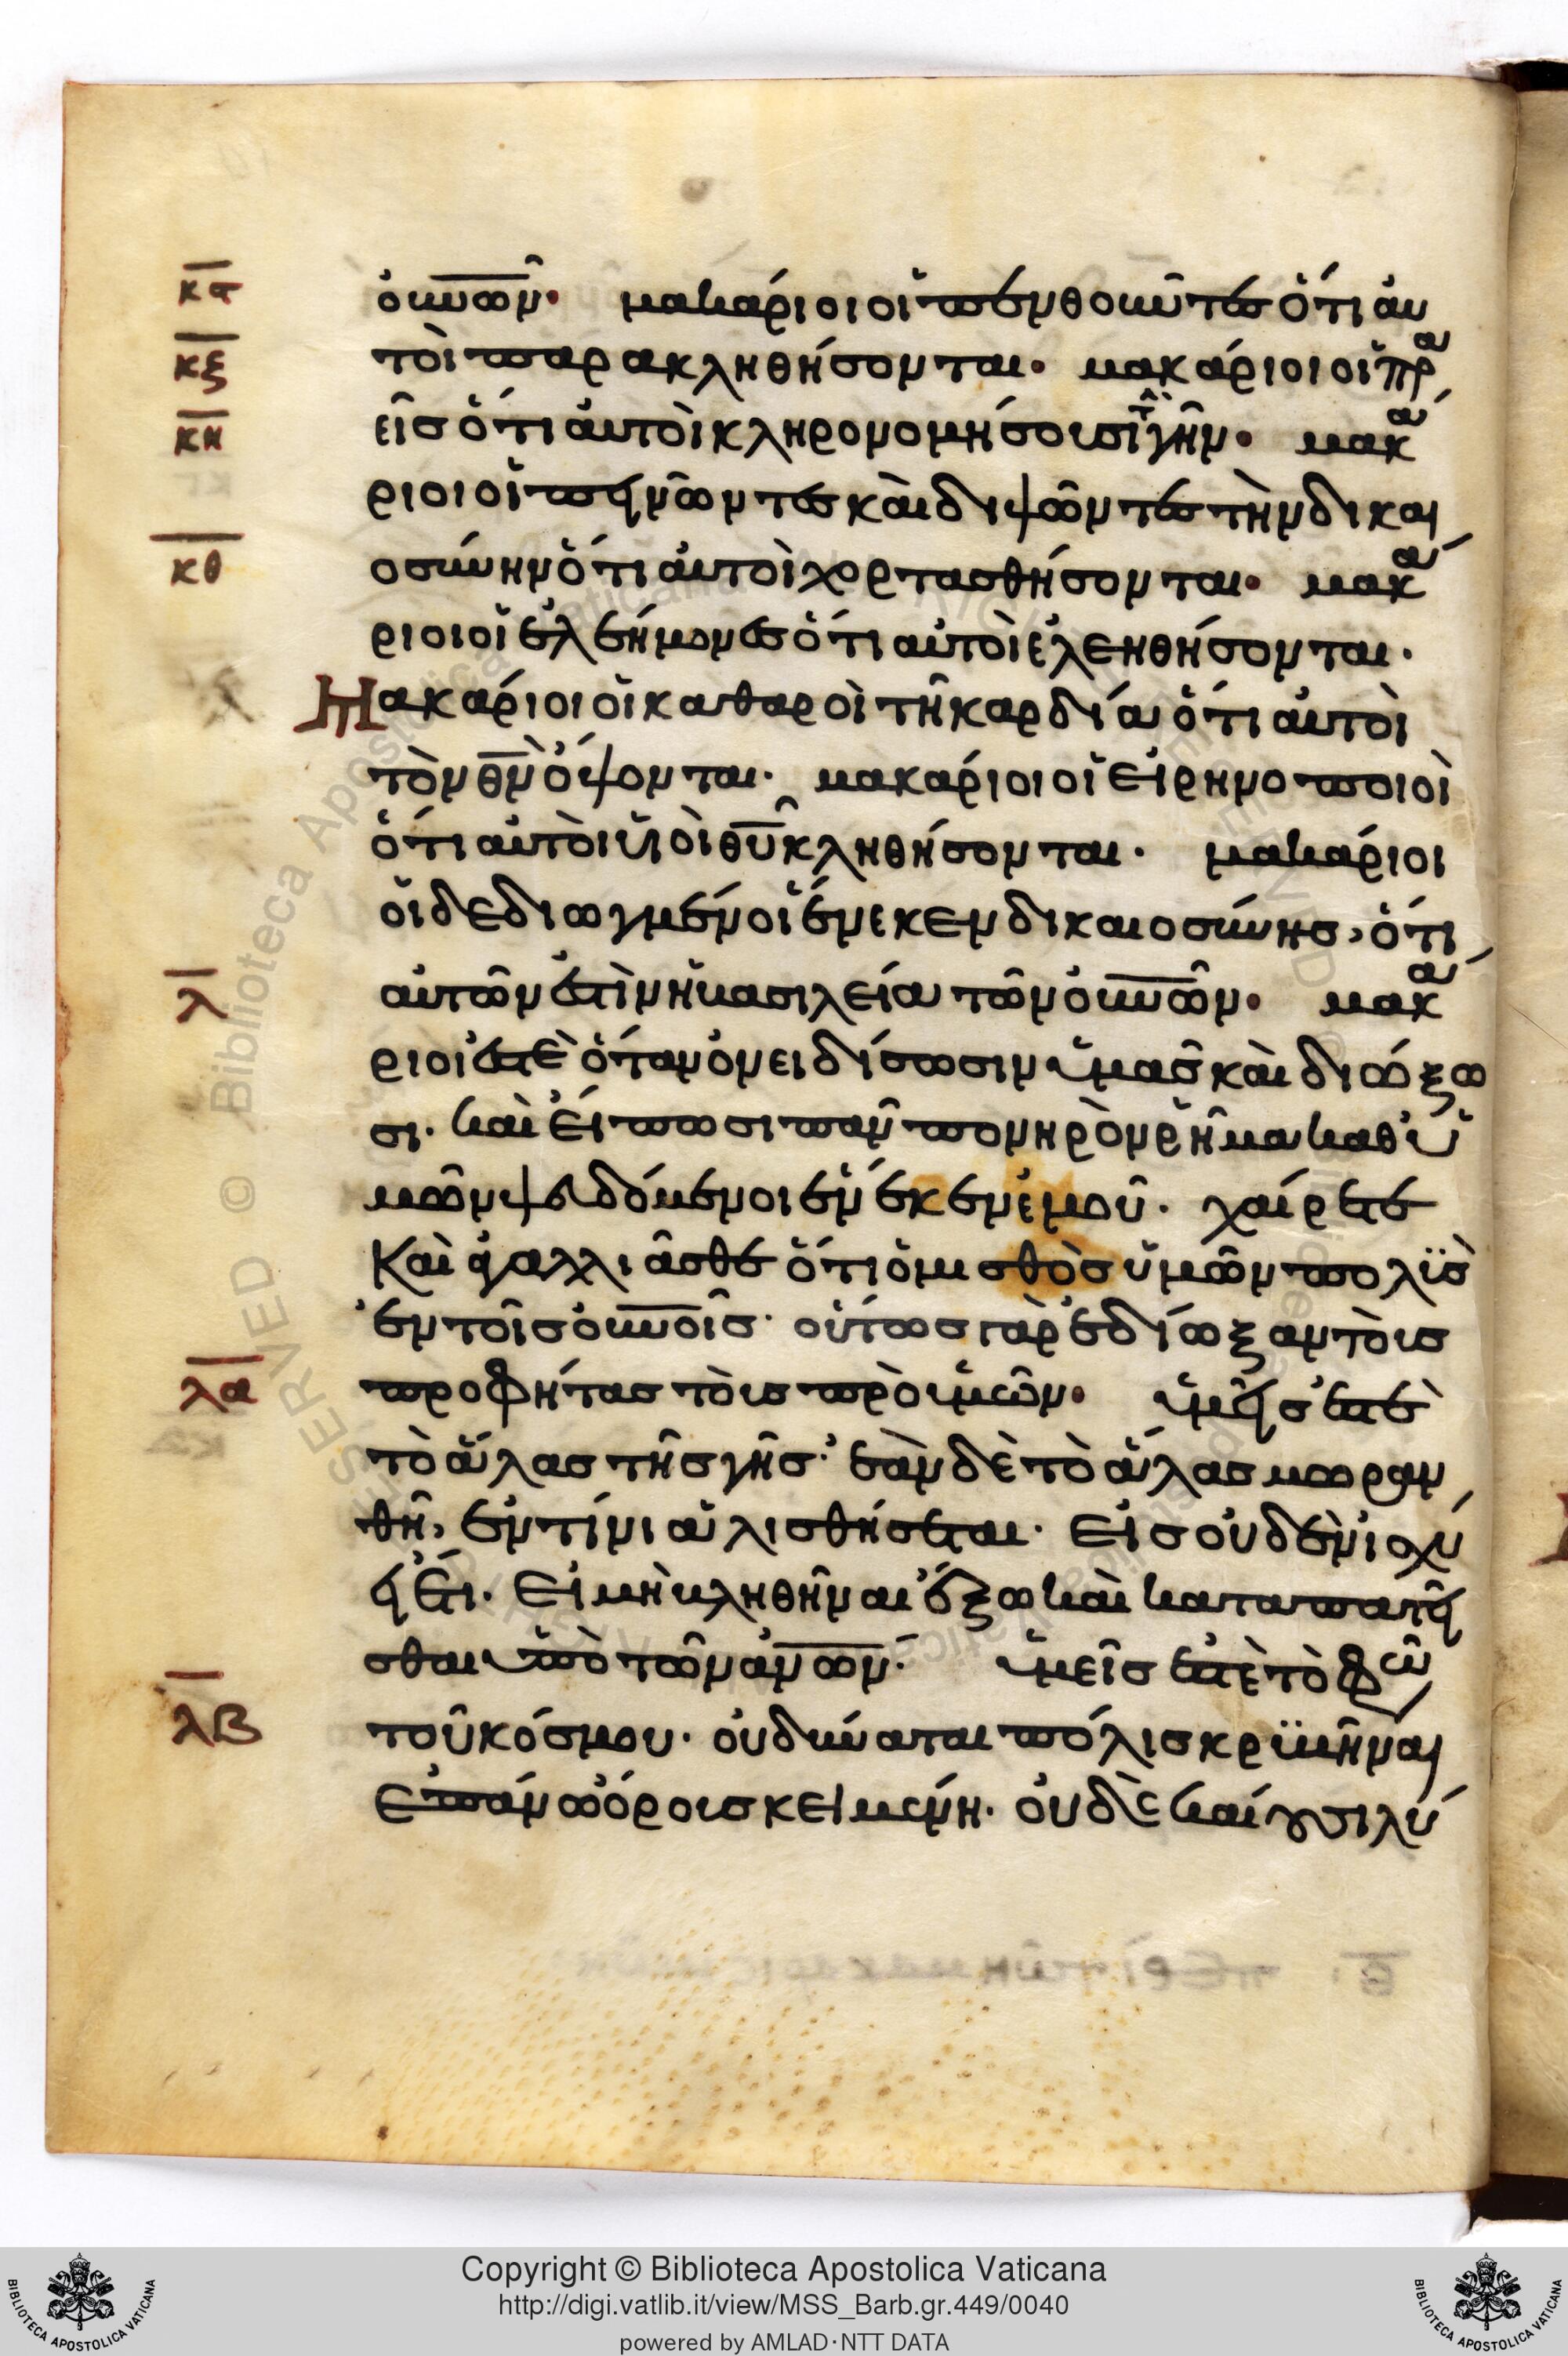 κϛ
ο̅υ̅ν̅ω̅ν̅· μακάριοι οἱ πενθοῦντες ὅτι αὐ
κζ
τοὶ παρακληθήσονται· μακάριοι οἱ πρα
κη
εῖς ὅτι αὐτοὶ κληρονομήσουσι τὴν γῆν· μακά
ριοι οἱ πεινῶντες καὶ διψῶντες τὴν δικαι
κθ
οσύνην ὅτι αὐτοὶ χορτασθήσονται· μακά
ριοι οἱ ἐλεήμονες ὅτι αὐτοὶ ἐλεηθήσονται·
Μακάριοι οἱ καθαροὶ τῆ καρδία ὅτι αὐτοὶ
τὸν θ̅ν̅ ὄψονται· μακάριοι οἱ εἰρηνοποιοὶ
ὅτι αὐτοὶ υἱοὶ θ̅υ̅ κληθήσονται· μακάριοι
οἱ δεδιωγμένοι ἕνεκεν δικαιοσύνης, ὅτι
λ
αὐτῶν ἐστὶν ἡ βασιλεία τῶν ο̅υ̅ν̅ω̅ν̅· μακά
ριοι ἐστὲ ὅταν ὀνειδίσωσιν ὑμᾶς καὶ διώξω
σι· καὶ εἴπωσι πᾶν πονηρὸν ῥῆμα καθ' ὑ
μῶν ψευδόμενοι ἕνεκεν ἐμοῦ· χαίρετε
καὶ ἀγαλλιᾶσθε ὅτι ὁ μισθὸς ὑμῶν πολὺς
ἐν τοῖς ο̅υ̅ν̅οῖς· οὕτως γὰρ ἐδίωξαν τοὺς
λα
προφήτας τοὺς πρὸ ὑμῶν· ὑμεῖς ἐστὲ
τὸ ἅλας τῆς γῆς· ἐὰν δὲ τὸ ἅλας μωραν
θῆ, ἐν τίνι ἁλισθήσεται· εἰς οὐδὲν ἰσχύ
ει ἔτι· εἰ μὴ βληθῆναι ἔξω καὶ καταπατεῖ
σθαι ὑπὸ τῶν α̅ν̅ω̅ν̅· ὑμεῖς ἐστὲ τὸ φῶς
λβ
τοῦ κόσμου· οὐ δύναται πόλις κρϋβῆναι
ἐπάνω ὄρους κειμένη· οὐδὲ καίουσι λύ
Copyright © Biblioteca Apostolica Vaticana
http://digi.vatlib.it/view/MSS_Barb.gr.449/0040
powered by AMLAD·NTT DATA